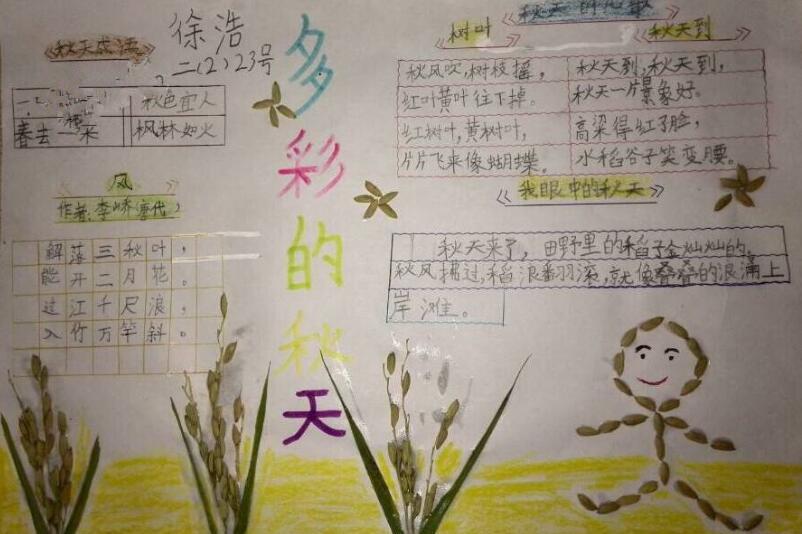 秋天成语
徐浩
二(2)23号
秋色宜人
春去秋来
枫林如火
风
作者:李峤(唐代)
解落三秋叶,
能开二月花。
过江千尺浪,
入竹万竿斜。
多彩的秋天
秋天的
树叶
秋风吹,树枝摇,
红叶黄叶往下掉。
红树叶,黄树叶,
片片飞来像蝴蝶。
秋天到
秋天到,秋天到,
秋天一片景象好。
高梁得红了脸,
水稻谷子笑变腰。
我眼中的秋天
秋天来了,田野里的稻子金灿灿的,
秋风拂过,稻浪翻滚,就像叠叠的浪涌上
岸滩。